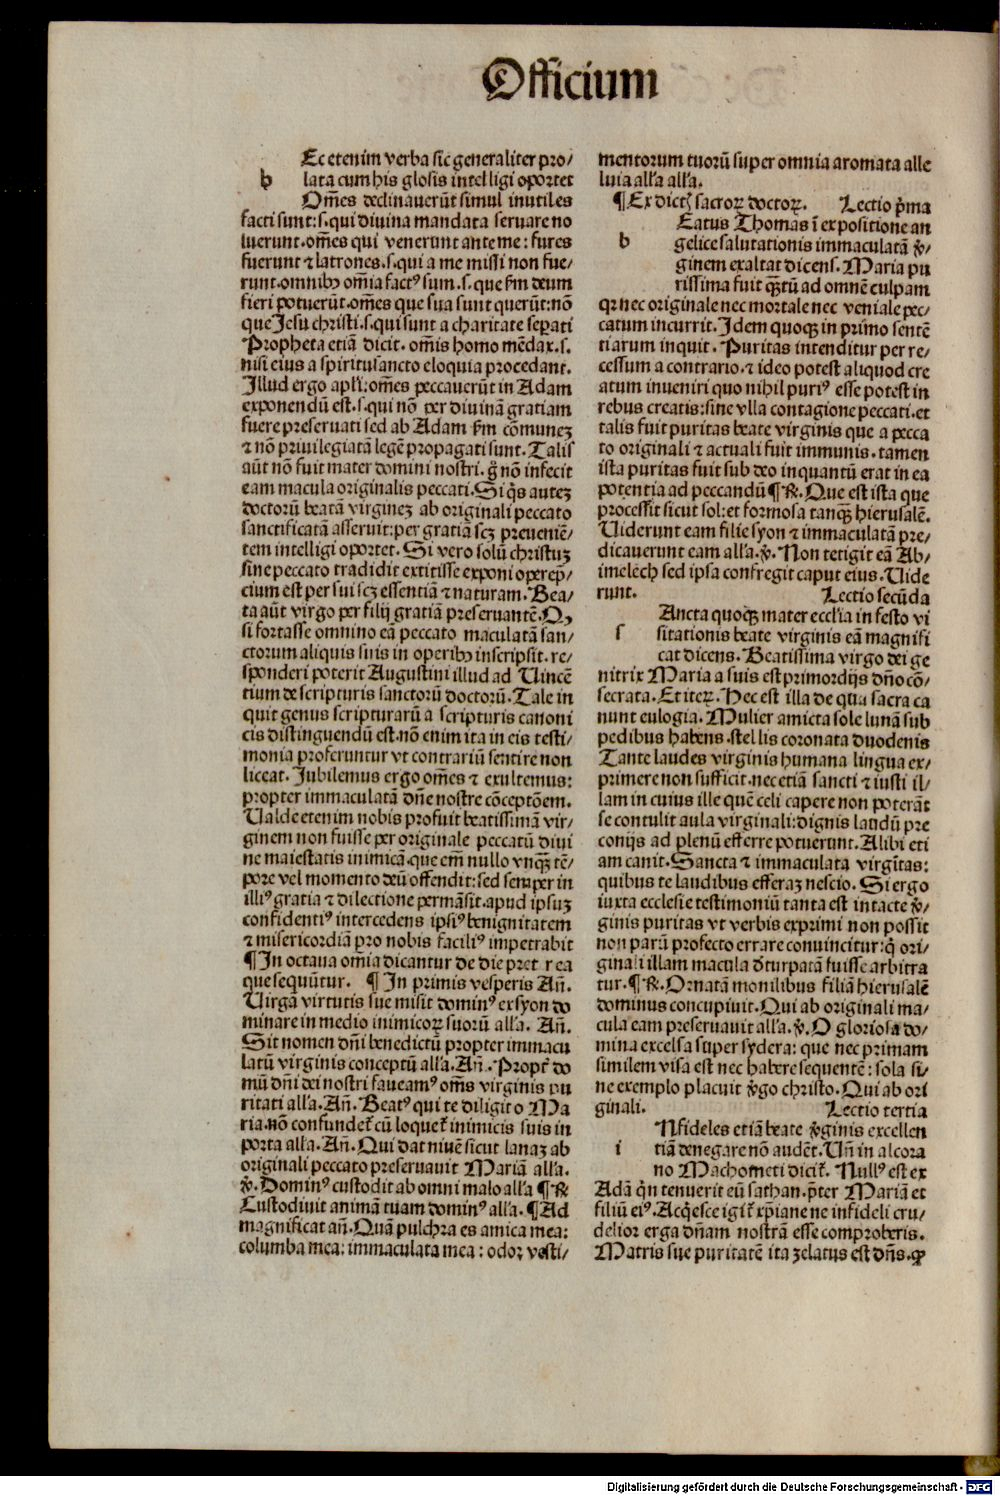 Officium
Ec etenim verba sic generaliter pro/
h lata cum his glosis intelligi oportet
Om̄es declinauerūt simul inutiles
facti sunt:s.qui diuina mandata seruare no
luerunt.om̄es qui venerunt ante me: fures
fuerunt ⁊ latrones.s.qui a me missi non fue/
runt.omnibꝰ om̄ia factꝰ sum.s.que s̄m deum
fieri potuerūt.om̄es que sua sunt querūt:nō
que Jesu christi.s.qui sunt a charitate sep̄ati
Propheta etiā dicit. om̄is homo mēdax.s.
nisi eius a spiritusancto eloquia procedant.
Illud ergo apl̄i:om̄es peccauerūt in Adam
exponendū est.s.qui nō per diuinā gratiam
fuere preseruati sed ab Adam s̄m cōmunez
⁊ nō priuilegiatā legē propagati sunt.Talis
aūt nō fuit mater domini nostri.g̊ nō infecit
eam macula originalis peccati.Si q̄s autez
doctorū beatā virginez ab originali peccato
sanctificatā asseruit:per gratiā scꝫ preueniē/
tem intelligi oportet.Si vero solū christuz
sine peccato tradidit extitisse exponi opere p̄/
cium est per sui scꝫ essentiā ⁊ naturam.Bea/
ta aūt virgo per filij gratiā preseruantē.Q,
si fortasse omnino eā peccato maculatā san/
ctorum aliquis suis in operibꝰ inscripsit.re/
sponderi poterit Augustini illud ad Uincē
tium de scripturis sanctorū doctorū.Tale in
quit genus scripturarū a scripturis canoni
cis distinguendū est.nō enim ita in eis testi/
monia proferuntur vt contrariū sentire non
liceat.Jubilemus ergo om̄es ⁊ exultemus:
propter immaculatā dn̄e nostre cōceptōem.
Ualde etenim nobis profuit beatissimā vir/
ginem non fuisse per originale peccatū diui
ne maiestatis inimicā.que em̄ nullo vnqꝫ tē/
pore vel momento deū offendit:sed semper in
illiꝰ gratia ⁊ dilectione permāsit.apud ipsuz
confidentiꝰ intercedens ipsiꝰ benignitatem
⁊ misericordiā pro nobis faciliꝰ impetrabit
¶ In octaua om̄ia dicantur de die pret r ea
que sequūtur. ¶ In primis vesperis An̄.
Uirgā virtutis sue misit dominꝰ ex syon do
minare in medio inimicoꝝ suorū all'a. An̄.
Sit nomen dn̄i benedictū propter immacu
latū virginis conceptū all'a.An̄.Propt̄ do
mū dn̄i dei nostri faueamꝰ om̄s virginis pu
ritati all'a.An̄.Beatꝰ qui te diligit o Ma
ria.nō confundet̄ cū loquet̄ inimicis suis in
porta all'a.An̄.Qui dat niuē sicut lanaz ab
originali peccato preseruauit Mariā all'a.
℣.Dominꝰ custodit ab omni malo all'a ¶ ℟
Custodiuit animā tuam dominꝰ all'a.¶ Ad
magnificat an̄.Quā pulchra es amica mea:
columba mea: immaculata mea: odoꝝ vesti/
mentorum tuorū super omnia aromata alle
luia all'a all'a.
¶ Ex dict̄ sacroꝝ doctoꝝ. Lectio p̄ma
Eatus Thomas ī expositione an
b gelice salutationis immaculatā ℣/
ginem exaltat dicens.Maria pu
rissima fuit qꝫtū ad omnē culpam
qꝛ nec originale nec mortale nec veniale pec/
catum incurrit.Idem quoqꝫ in primo sentē
tiarum inquit. Puritas intenditur per re/
cessum a contrario.⁊ ideo potest aliquod cre
atum inueniri quo nihil puriꝰ esse potest in
rebus creatis:sine vlla contagione peccati.et
talis fuit puritas beate virginis que a pecca
to originali ⁊ actuali fuit immunis.tamen
ista puritas fuit sub deo inquantū erat in ea
potentia ad peccandū ¶ ℟.Que est ista que
processit sicut sol:et formosa tanqꝫ hierusalē.
Uiderunt eam filie syon ⁊ immaculatā pre/
dicauerunt eam all'a.℣.Non tetigit eā Ab/
imelech sed ipsa confregit caput eius.Uide
runt. Lectio secūda
Ancta quoqꝫ mater eccl'ia in festo vi
s sitationis beate virginis eā magnifi
cat dicens.Beatissima virgo dei ge
nitrix Maria a suis est primordijs dn̄o cō/
secrata.Et iteꝝ.Hec est illa de qua sacra ca
nunt eulogia.Mulier amicta sole lunā sub
pedibus habens.stellis coronata duodenis
Tante laudes virginis humana lingua ex/
primere non sufficit.nec etiā sancti ⁊ iusti il/
lam in cuius ille quē celi capere non poterāt
se contulit aula virginali:dignis laudū pre
conijs ad plenū efferre potuerunt.Alibi eti
am canit.Sancta ⁊ immaculata virgītas:
quibus te laudibus efferaz nescio.Si ergo
iuxta ecclesie testimoniū tanta est intacte ℣/
ginis puritas vt verbis exprimi non possit
non parū profecto errare conuincitur:q̇ ori/
ginali illam macula dꝰturpatā fuisse arbitra
tur.¶ ℟.Ornatā monilibus filiā hierusalē
dominus concupiuit.Qui ab originali ma/
cula eam preseruauit all'a.℣.O gloriosa do/
mina excelsa super sydera: que nec primam
similem visa est nec habere sequentē: sola si/
ne exemplo placuit ℣go christo.Qui ab ori
ginali. Lectio tertia
Nfideles etiā beate ℣ginis excellen
i tiā denegare nō audēt.Un̄ in alcora
no Machometi dicit̄. Nullꝰ est ex
Adā q̇n tenuerit eū sathan.p̄ter Mariā et
filiū eiꝰ.Acq̇esce igit̄ xp̄iane ne infideli cru/
delior erga dn̄am nostrā esse comproberis.
Matris sue puritatē ita zelatus est dn̄s.ꝙ
Digitalisierung gefördert durch die Deutsche Forschungsgemeinschaft - DFG